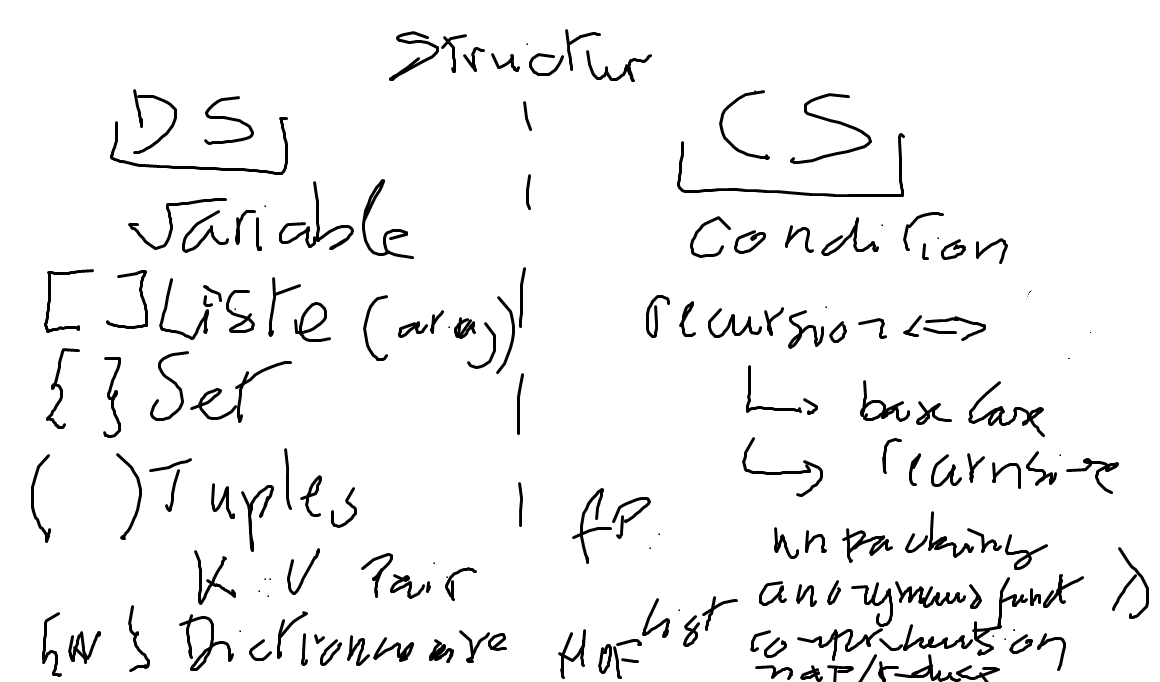 Structur
DS
Variable
[ ] Liste (aray)
{ } Set
( ) Tuples
K : V Pair
{ } Dictionnaire
CS
Condition
recursion <=>
↳ base case
↳ recursive
FP
unpacking
anonymous funct λ
list comprehension
HOF map/reduce